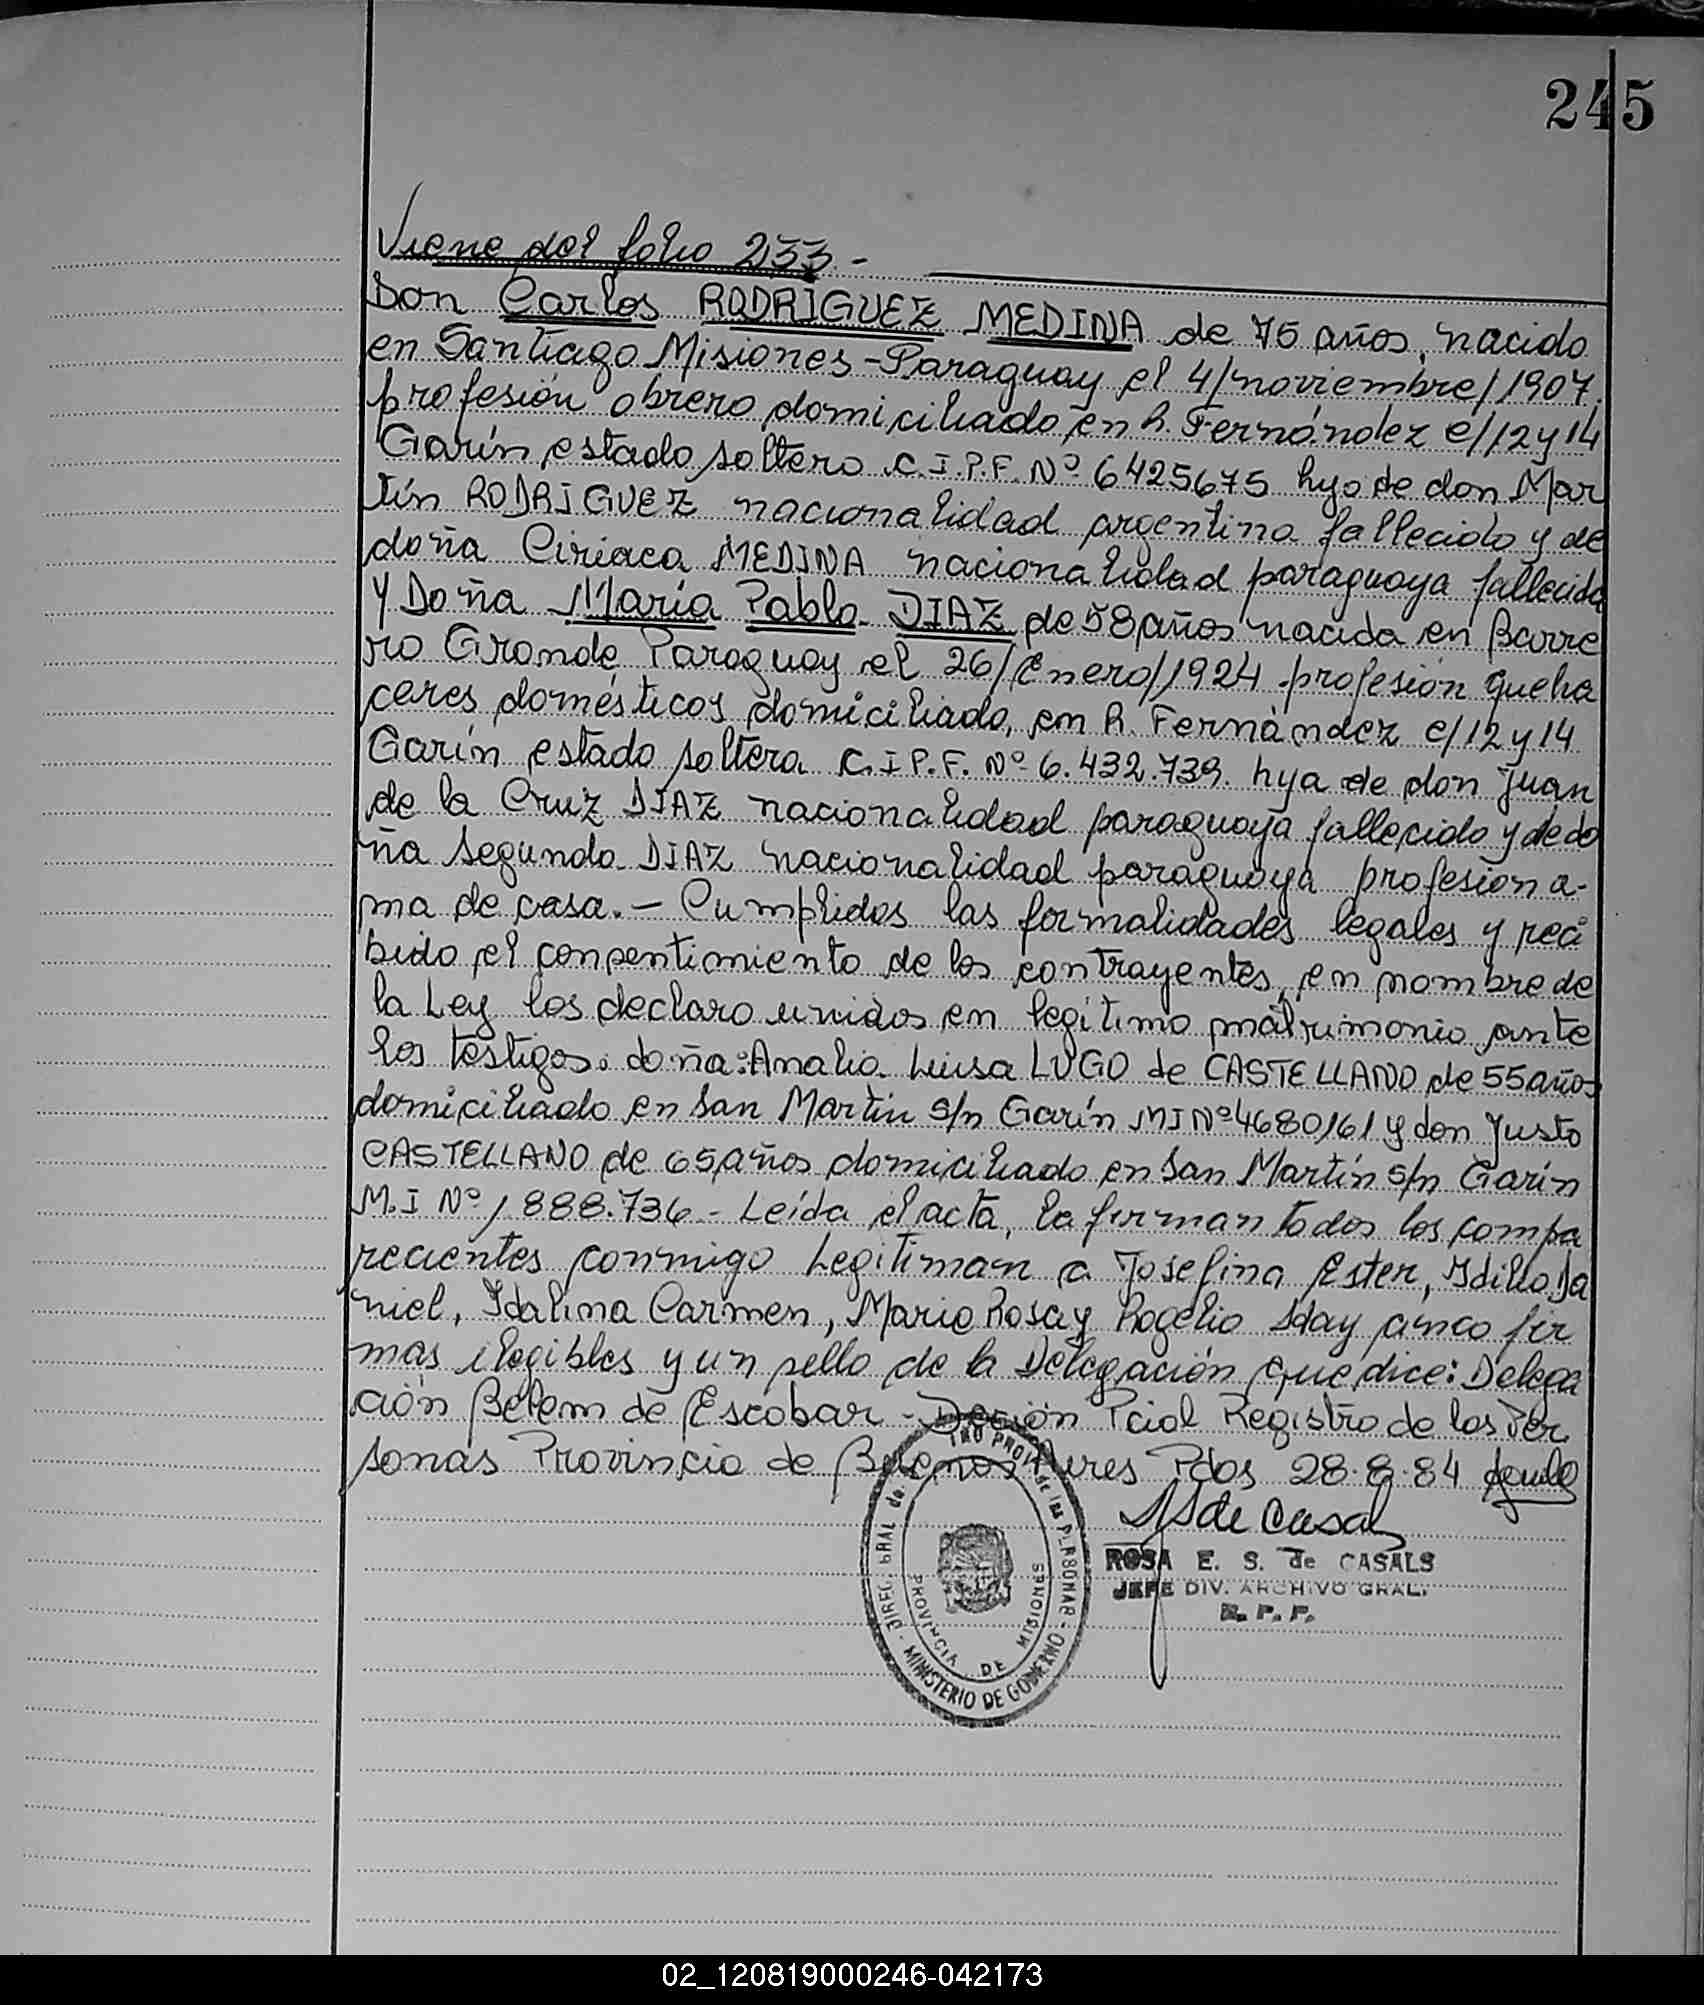 245
Viene del folio 233.-
Don Carlos RODRIGUEZ MEDINA de 75 años, nacido
en Santiago Misiones-Paraguay el 4/noviembre/1907.
profesión obrero domiciliado en R. Fernández e/12 y 14
Garín estado soltero C.I.P.F. Nº 6425675 hijo de don Mar
tín RODRIGUEZ nacionalidad argentina fallecido y de
doña Ciriaca MEDINA nacionalidad paraguaya fallecida
Y Doña María Pabla DIAZ de 58 años nacida en Barre
ro Grande Paraguay el 26/Enero/1924 profesión queha
ceres domésticos domiciliada en R. Fernández e/12 y 14
Garín estado soltera C.I.P.F. Nº 6.432.739. hija de don Juan
de la Cruz DIAZ nacionalidad paraguaya fallecido y de do
ña Segunda DIAZ nacionalidad paraguaya profesion a-
ma de casa.- Cumplidas las formalidades legales y reci
bido el consentimiento de los contrayentes, en nombre de
la Ley los declaro unidos en legítimo matrimonio ante
los testigos: doña: Analia Luisa LUGO de CASTELLANO de 55 años
domiciliado en San Martín s/n Garín MI Nº 4680161 y don Justo
CASTELLANO de 65 años domiciliado en San Martín s/n Garín
M.I Nº 1888.736.- Leída el acta, la firman todos los compa
recientes conmigo Legitiman a Josefina Ester, Idilio Da
niel, Idalina Carmen, Mario Rosa y Rogelio Hay cinco fir
mas ilegibles y un sello de la Delegación que dice: Delega
ción Belem de Escobar - Dección Pcial Registro de las Per
sonas Provincia de Buenos Aires Pdas 28.8.84
RSde Casals
ROSA E. S. de CASALS
JEFE DIV. ARCHIVO GRAL.
R. P. P.
DIREC. GRAL de PROV. de las PERSONAS - MINISTERIO DE GOBIERNO
PROVINCIA DE MISIONES
02_120819000246-042173